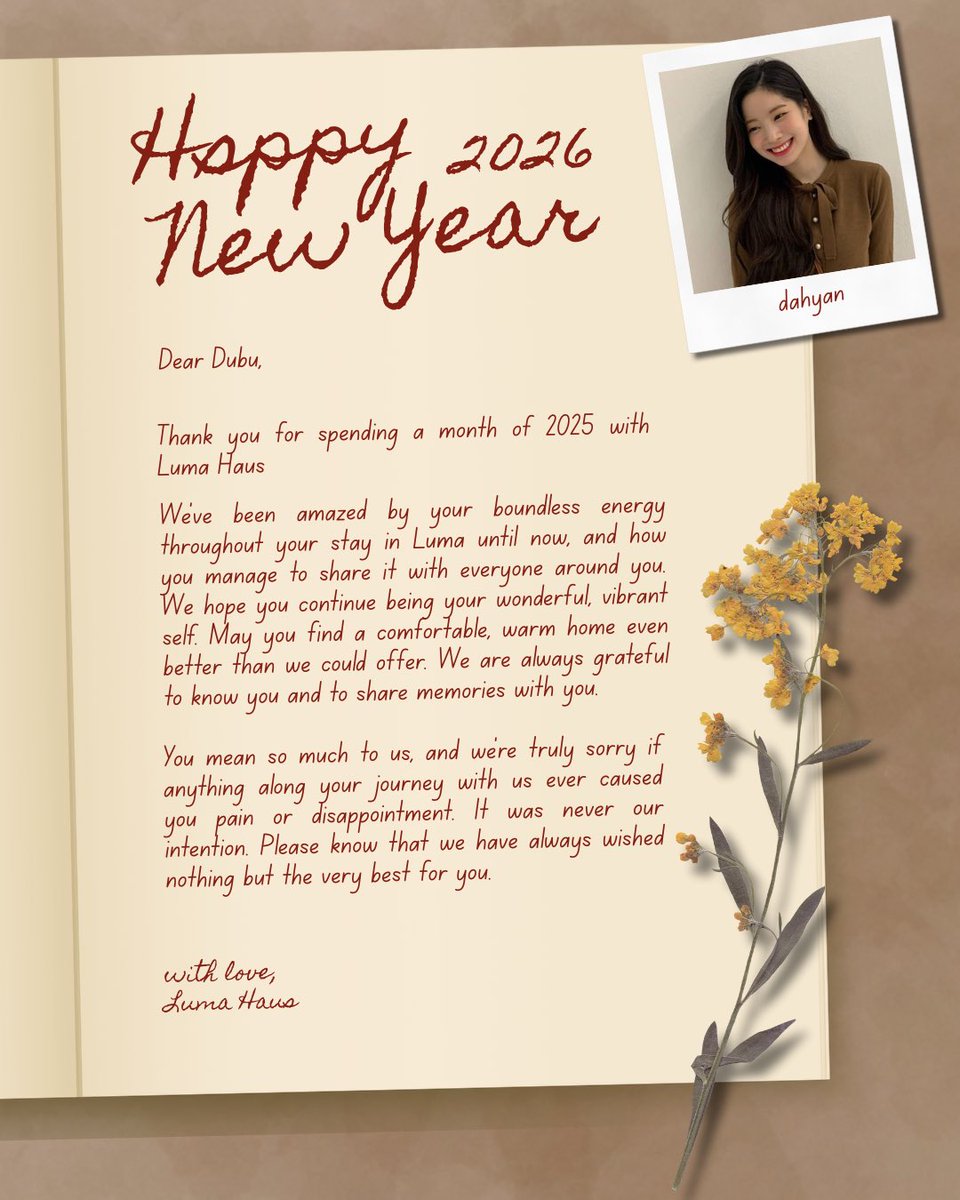 Happy 2026
New Year
dahyan
Dear Dubu,
Thank you for spending a month of 2025 with
Luma Haus
We've been amazed by your boundless energy
throughout your stay in Luma until now, and how
you manage to share it with everyone around you.
We hope you continue being your wonderful, vibrant
self. May you find a comfortable, warm home even
better than we could offer. We are always grateful
to know you and to share memories with you.
You mean so much to us, and we're truly sorry if
anything along your journey with us ever caused
you pain or disappointment. It was never our
intention. Please know that we have always wished
nothing but the very best for you.
with love,
Luma Haus